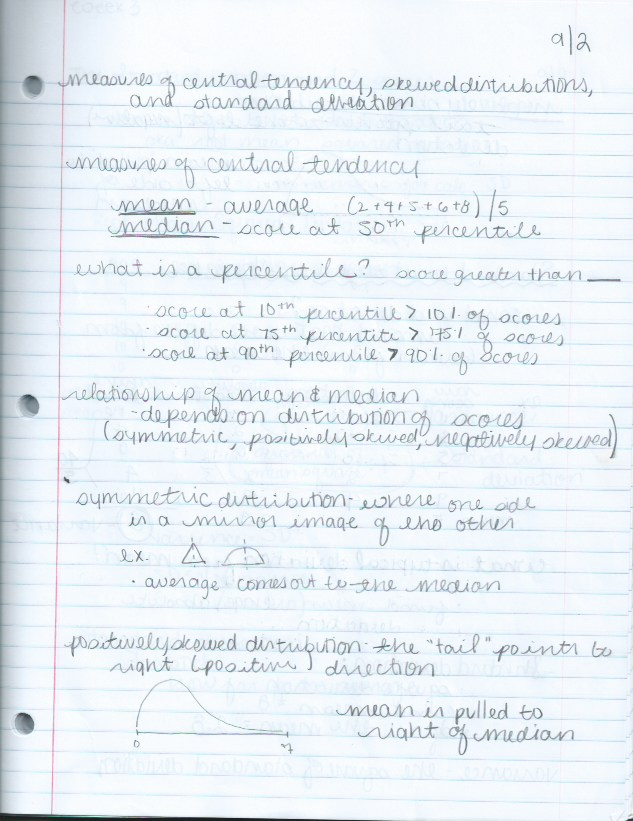 9/2
measures of central tendency, skewed distributions,
and standard deviation
measures of central tendency
mean - average (2+4+5+6+8)/5
median - score at 50th percentile
what is a percentile? score greater than ___
· score at 10th percentile > 10% of scores
· score at 75th percentile > 75% of scores
· score at 90th percentile > 90% of scores
relationship of mean & median
- depends on distribution of scores
(symmetric, positively skewed, negatively skewed)
symmetric distribution - where one side
is a mirror image of the other
ex.
· average comes out to the median
positively skewed distribution - the "tail" points to
right (positive) direction
mean is pulled to
right of median
0